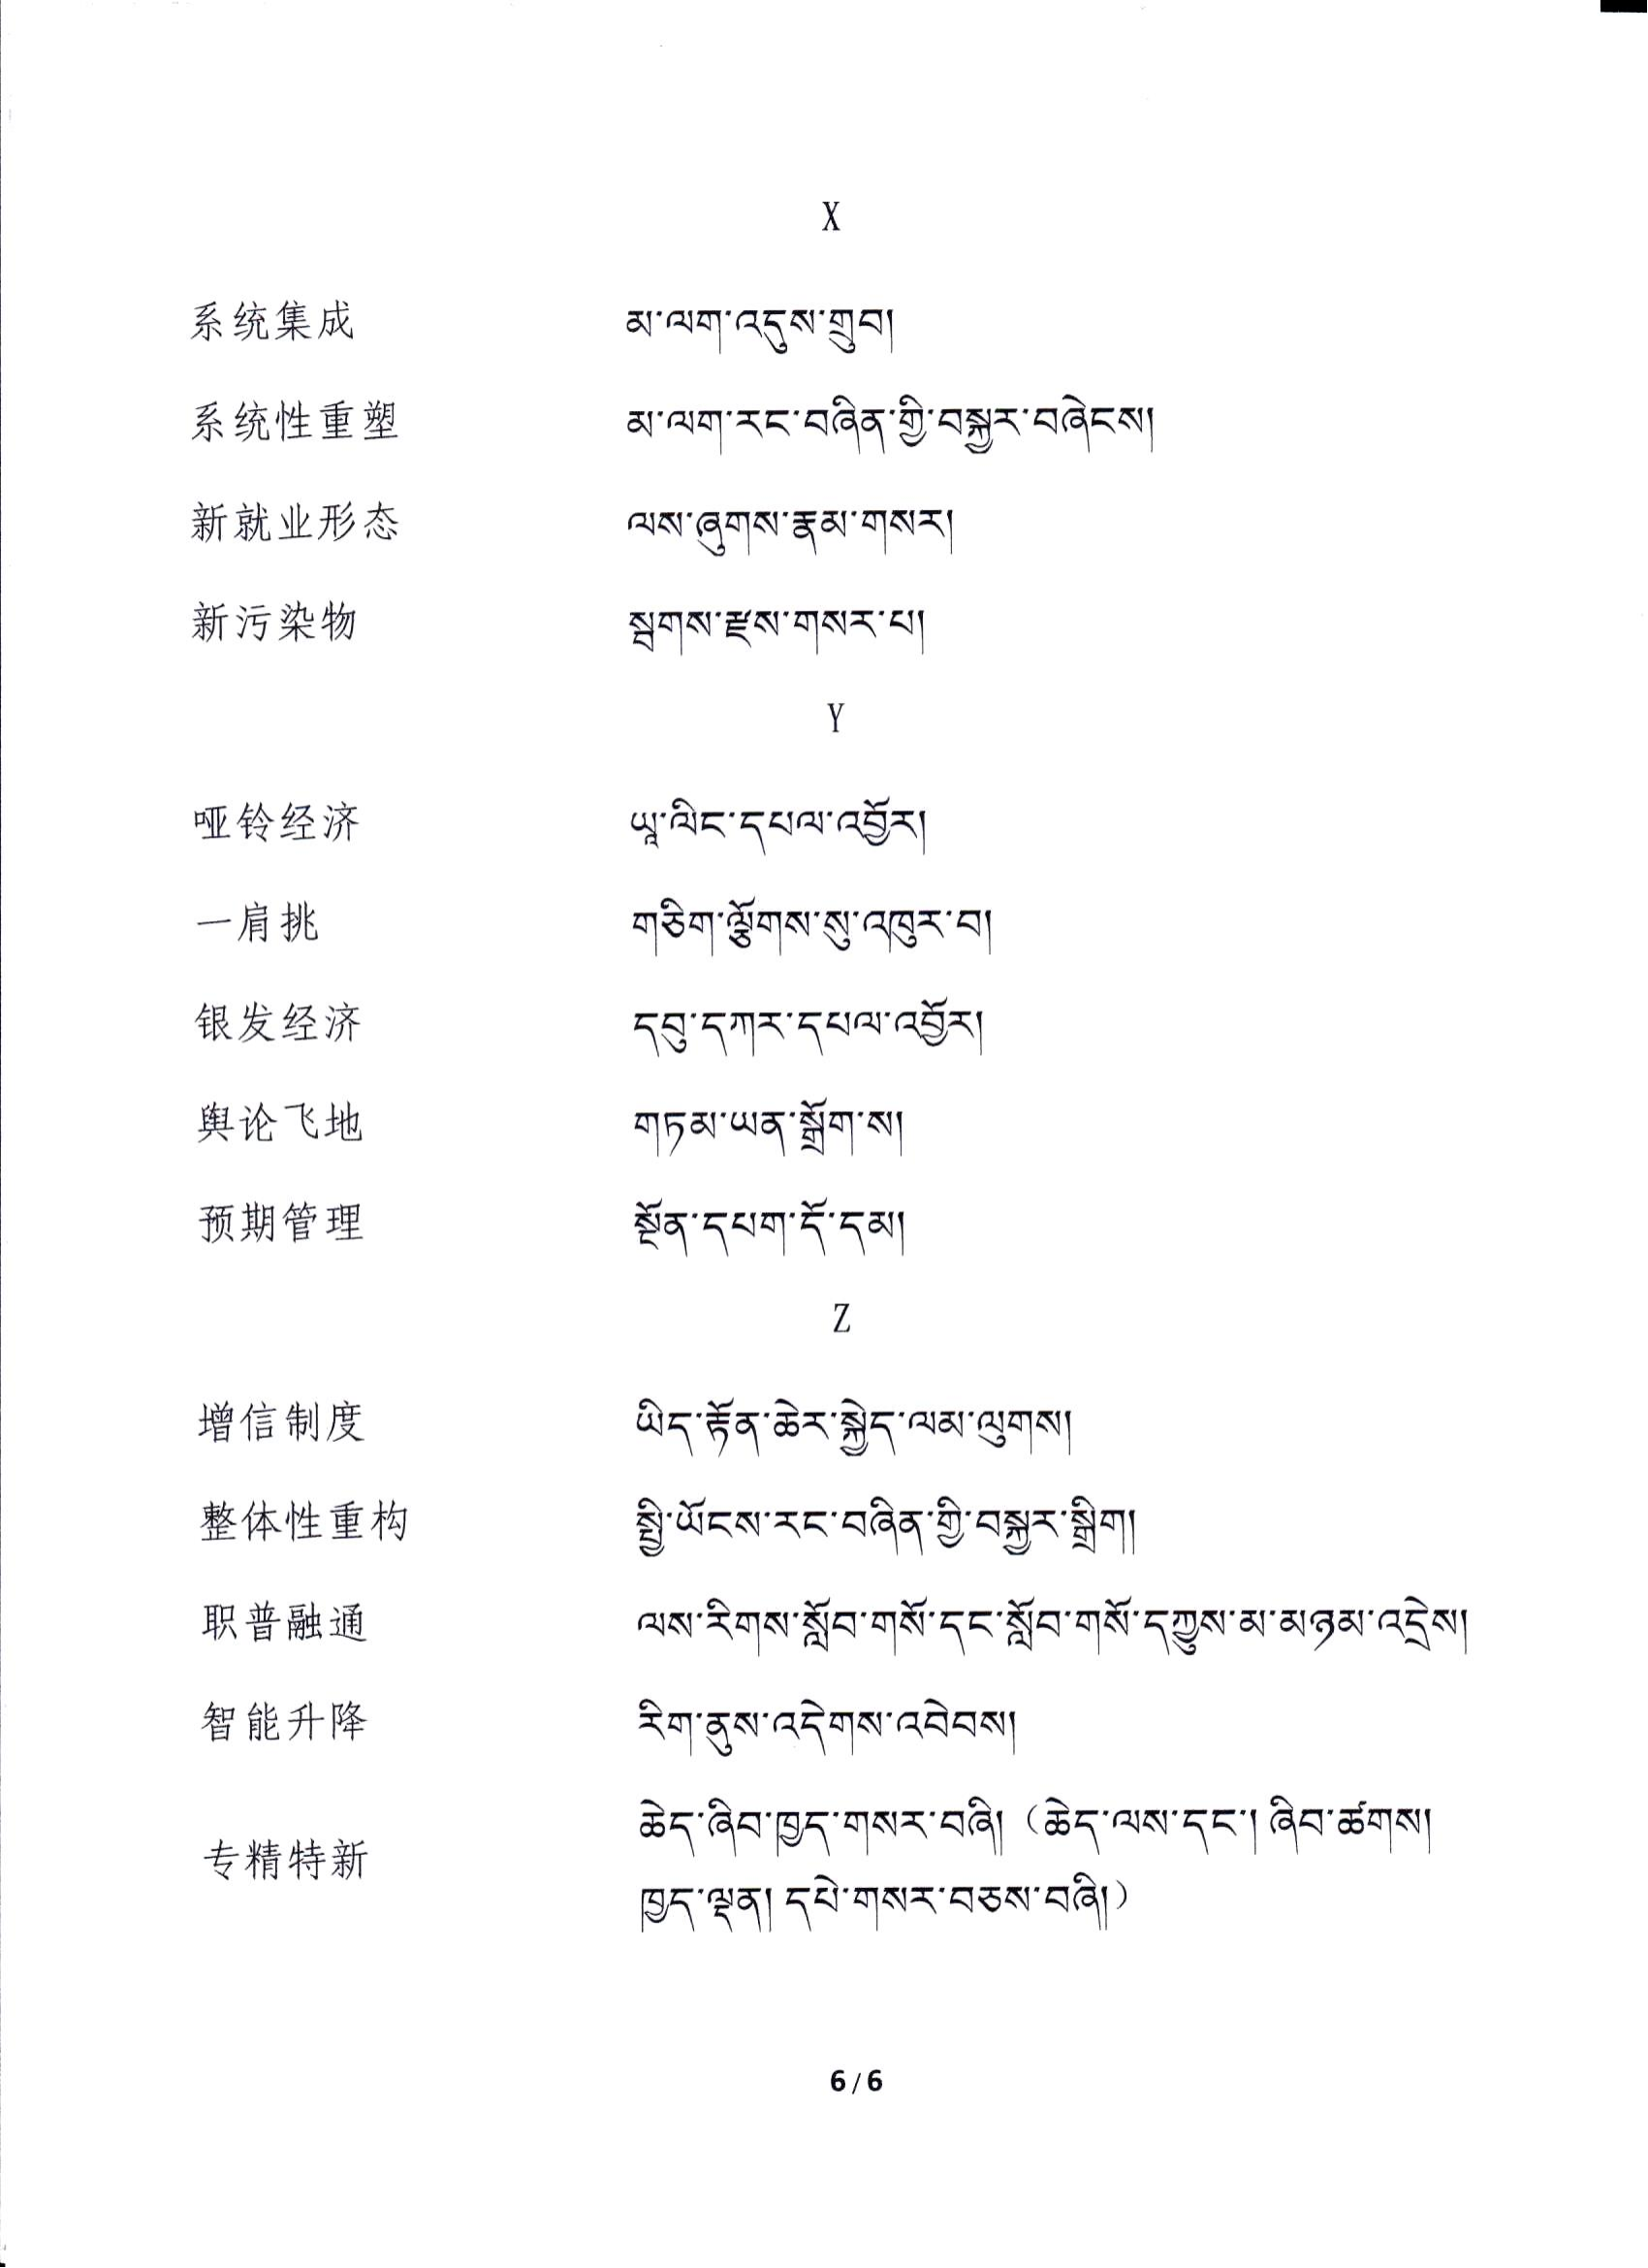 X
系统集成 མ་ལག་འདུས་གྲུབ།
系统性重塑 མ་ལག་རང་བཞིན་གྱི་བསྐྱར་བཞེངས།
新就业形态 ལས་ཞུགས་རྣམ་གསར།
新污染物 སྦགས་རྫས་གསར་པ།
Y
哑铃经济 ཡཱ་ལིང་དཔལ་འབྱོར།
一肩挑 གཅིག་ལྕོགས་སུ་འཁུར་བ།
银发经济 དབུ་དཀར་དཔལ་འབྱོར།
舆论飞地 གཏམ་ཡན་སྒྲོག་ས།
预期管理 སྔོན་དཔག་དོ་དམ།
Z
增信制度 ཡིད་རྟོན་ཆེར་སྐྱེད་ལམ་ལུགས།
整体性重构 སྤྱི་ཡོངས་རང་བཞིན་གྱི་བསྐྱར་སྒྲིག།
职普融通 ལས་རིགས་སློབ་གསོ་དང་སློབ་གསོ་དཀྱུས་མ་མཉམ་འདྲེས།
智能升降 རིག་ནུས་འདེགས་འབེབས།
专精特新 ཆེད་ཞིབ་ཁྱད་གསར་བཞི། （ཆེད་ལས་དང་། ཞིབ་ཚགས།
ཁྱད་ལྡན། དཔེ་གསར་བཅས་བཞི།）
6 / 6